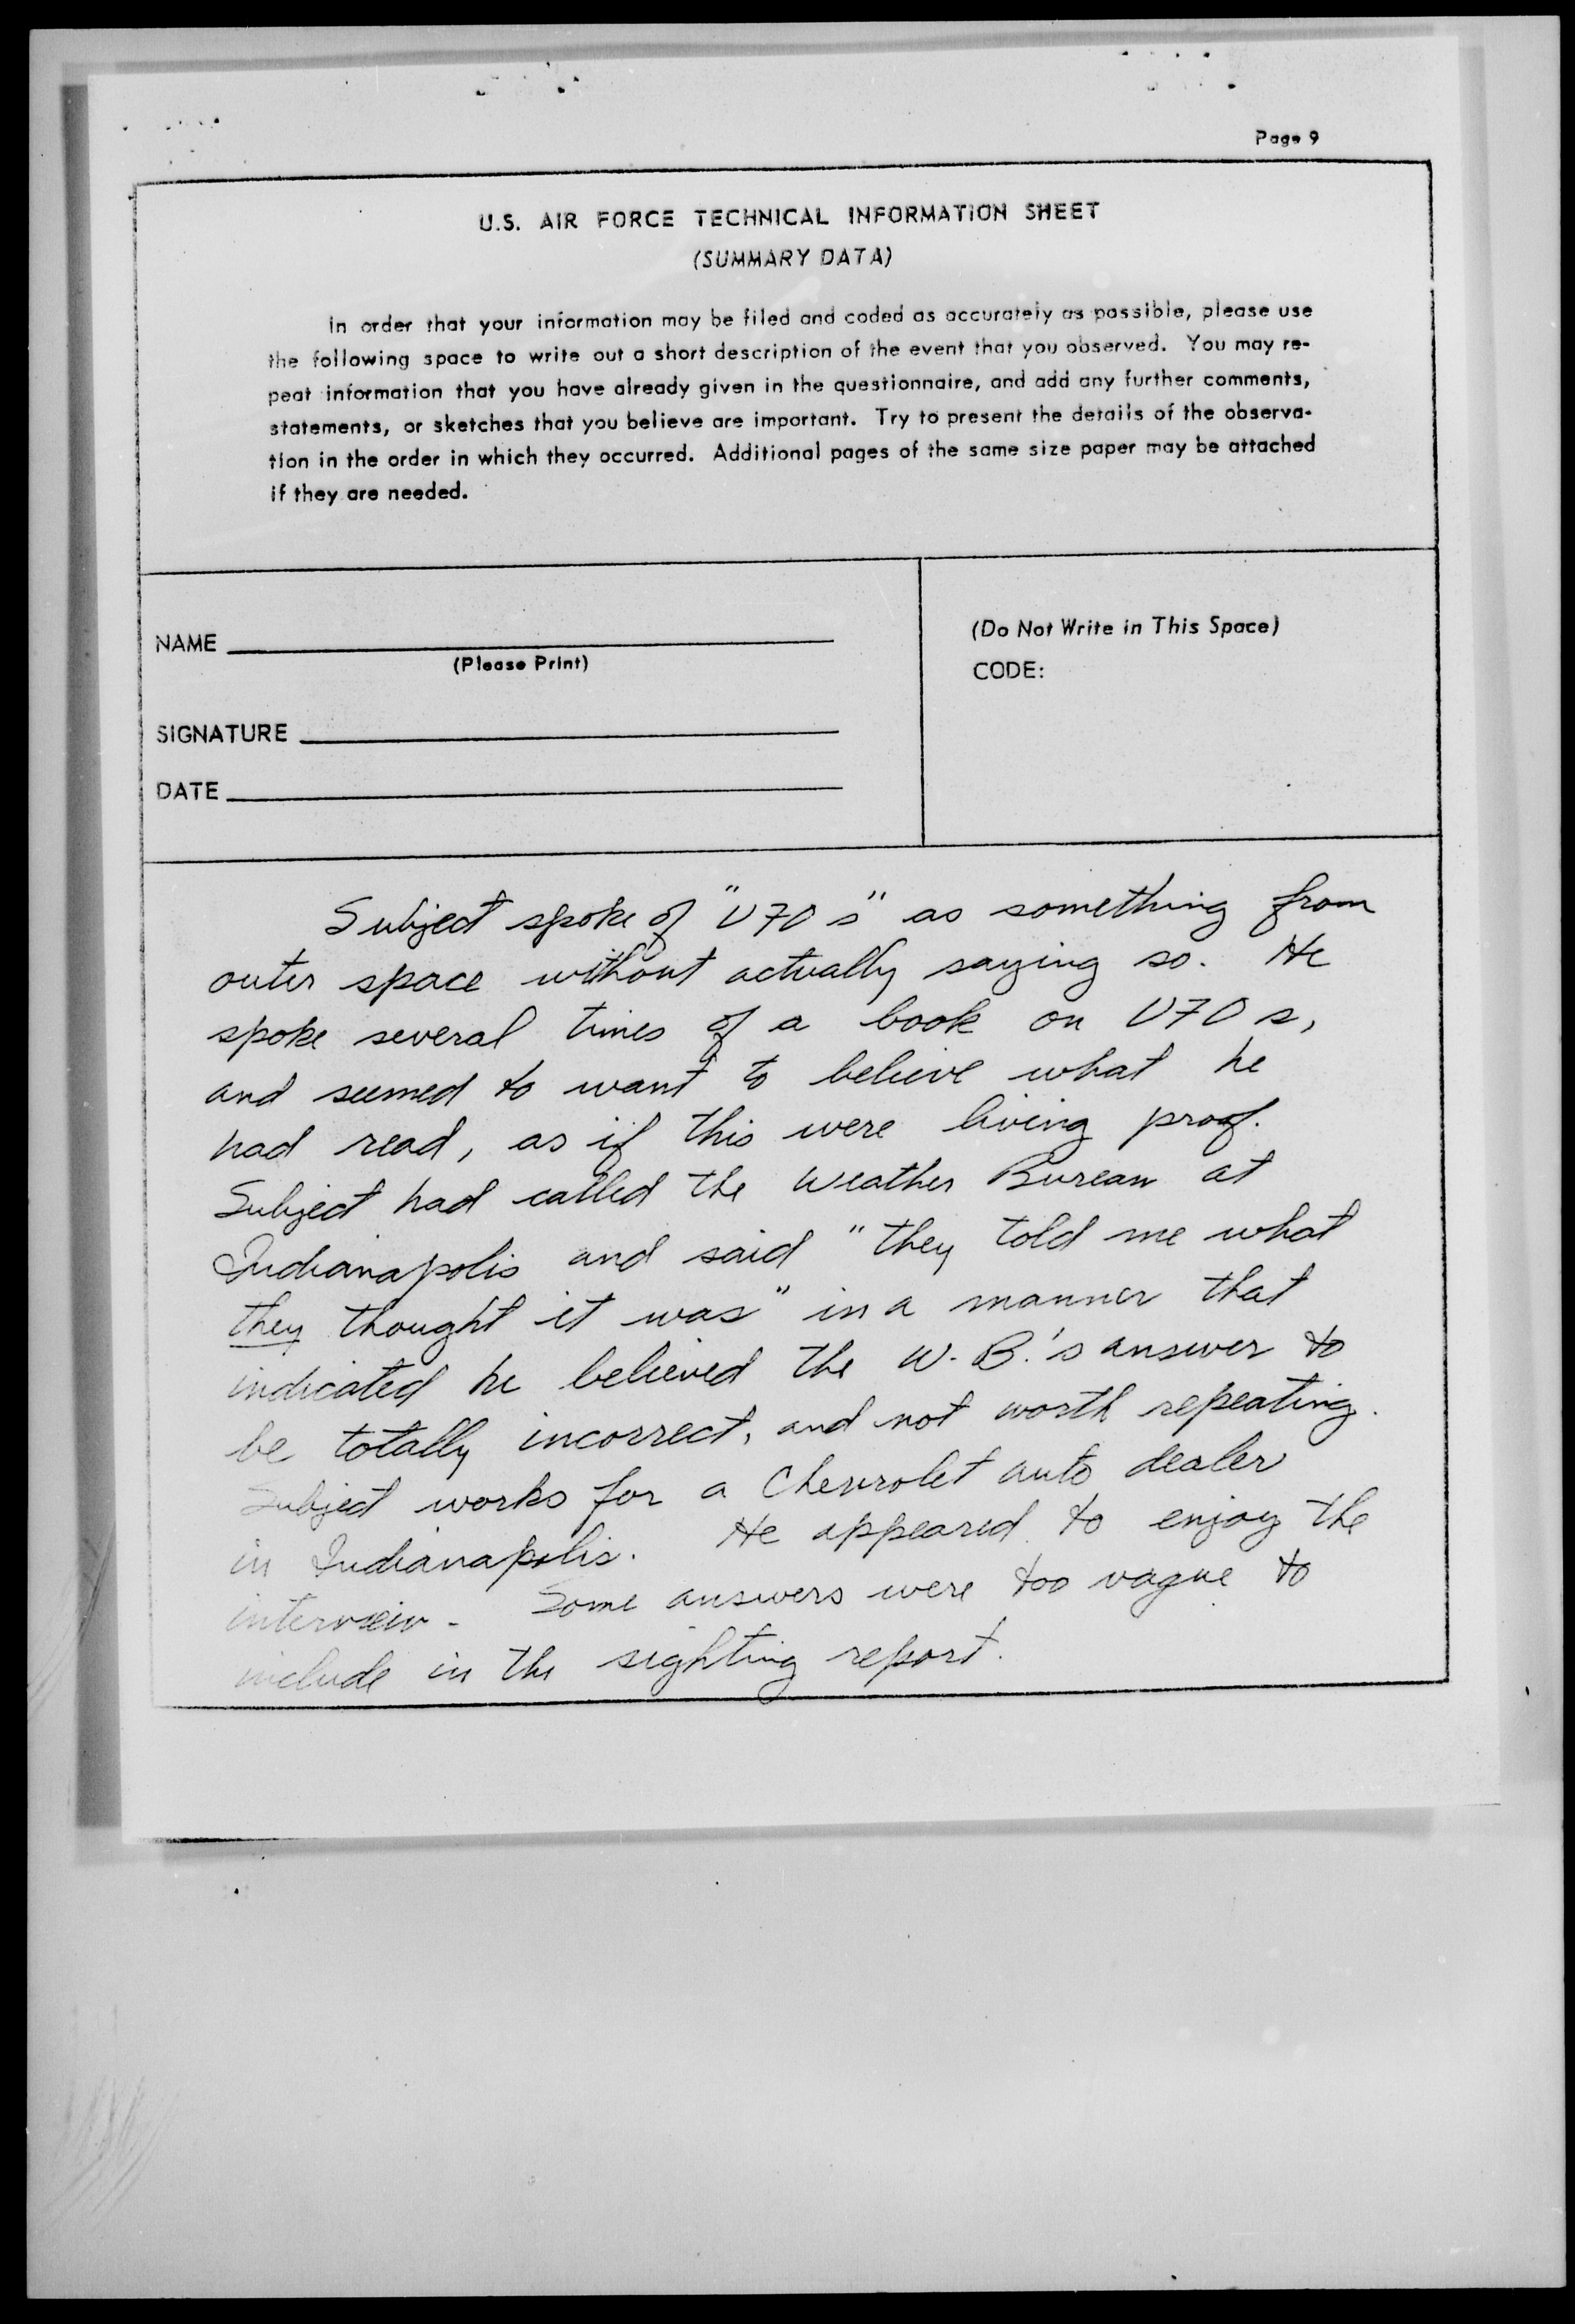 Page 9
U.S. AIR FORCE TECHNICAL INFORMATION SHEET
(SUMMARY DATA)
In order that your information may be filed and coded as accurately as possible, please use
the following space to write out a short description of the event that you observed. You may re-
peat information that you have already given in the questionnaire, and add any further comments,
statements, or sketches that you believe are important. Try to present the details of the observa-
tion in the order in which they occurred. Additional pages of the same size paper may be attached
if they are needed.
NAME
(Please Print)
SIGNATURE
DATE
(Do Not Write in This Space)
CODE:
Subject spoke of "UFO s" as something from
outer space without actually saying so. He
spoke several times of a book on UFO s,
and seemed to want to believe what he
had read, as if this were living proof.
Subject had called the Weather Bureau at
Indianapolis and said "they told me what
they thought it was" in a manner that
indicated he believed the W.B.'s answer to
be totally incorrect, and not worth repeating.
Subject works for a Chevrolet auto dealer
in Indianapolis. He appeared to enjoy the
interview - Some answers were too vague to
include in the sighting report.